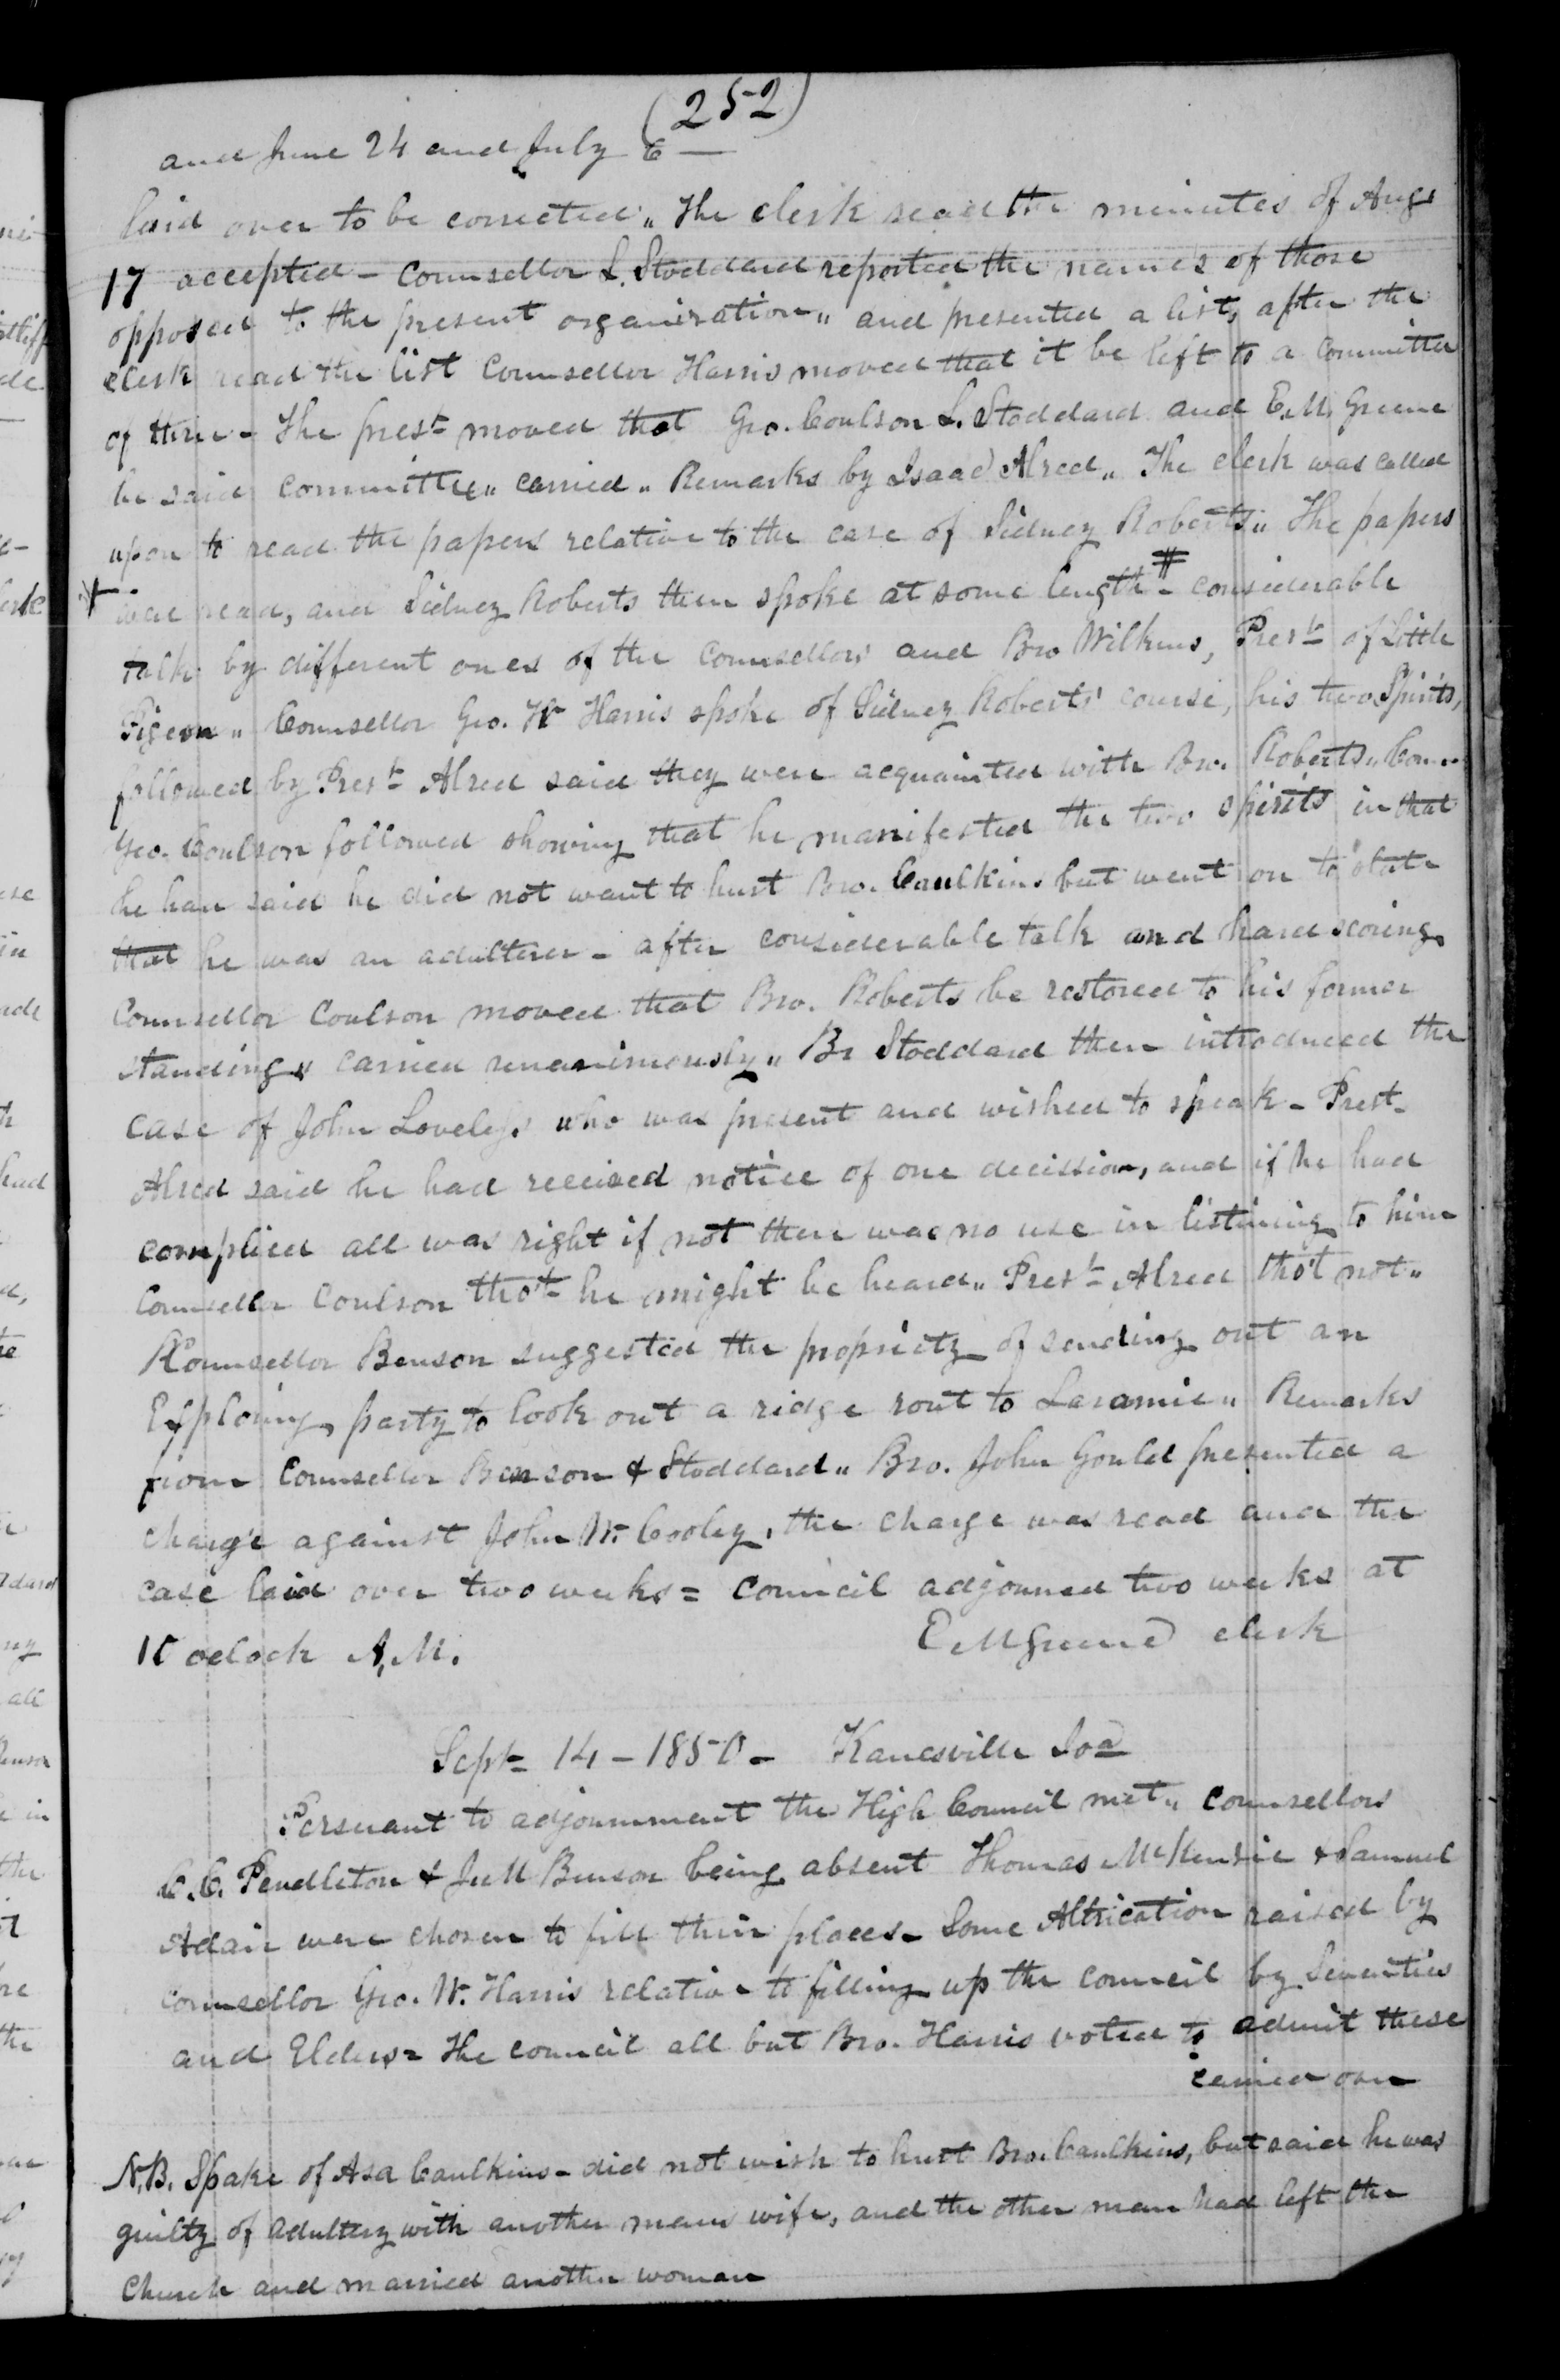 (252)
and June 24 and July 6 —
laid over to be corrected „ The clerk read the minutes of Augs
17 accepted – Counsellor L. Stoddard reported the names of those
opposed to the present organization „ and presented a list, after the
clerk read the list Counsellor Harris moved that it be left to a Committee
of three – The prest moved that Geo. Coulson L. Stoddard and E.M. Greene
be said committee „ carried „ Remarks by Isaac Alred „ The clerk was called
upon to read the papers relative to the case of Sidney Roberts „ The papers
were read, and Sidney Roberts then spoke at some length # – considerable
talk by different ones of the Counsellors and Bro Wilkins, Prest of Little
Pigeon „ Counsellor Geo. W Harris spoke of Sidney Roberts' course, his two Spirits,
followed by Prest Alred said they were acquainted with Bro. Roberts „ Coun–
Geo. Coulson followed showing that he manifested the two spirits in that
he had said he did not want to hurt Bro. Caulkins but went on to state
that he was an adulterer – after considerable talk and hard scoring
Counsellor Coulson moved that Bro. Roberts be restored to his former
standing „ carried unanimously „ Br Stoddard then introduced the
case of John Loveless who was present and wished to speak – Prest–
Alred said he had received notice of our decission, and if he had
complied all was right if not there was no use in listining to him
Counsellor Coulson tho't he might be heard „ Prest Alred tho't not „
Counsellor Benson suggested the propriety of sending out an
Exploring party to look out a ridge rout to Laramie „ Remarks
from Counsellor Benson & Stoddard „ Bro. John Gould presented a
charge against John W. Cooley, the charge was read and the
case laid over two weeks = Council adjourned two weeks at
10 oclock A.M. E M Greene clerk
Sept– 14 – 1850 – Kanesville Ioa
Persuant to adjournment the High Council met „ Counsellors
C.C. Pendleton & Benson being absent Thomas McKenzie & Samuel
Adair were chosen to fill their places – Some Altrication raised by
counsellor Geo. W. Harris relative to filling up the council by Seventies
and Elders = The council all but Bro. Harris voted to admit these
carried over
N.B. Spake of Asa Caulkins – did not wish to hurt Bro. Caulkins, but said he was
guilty of adultery with another mans wife, and the other man had left the
Church and married another woman